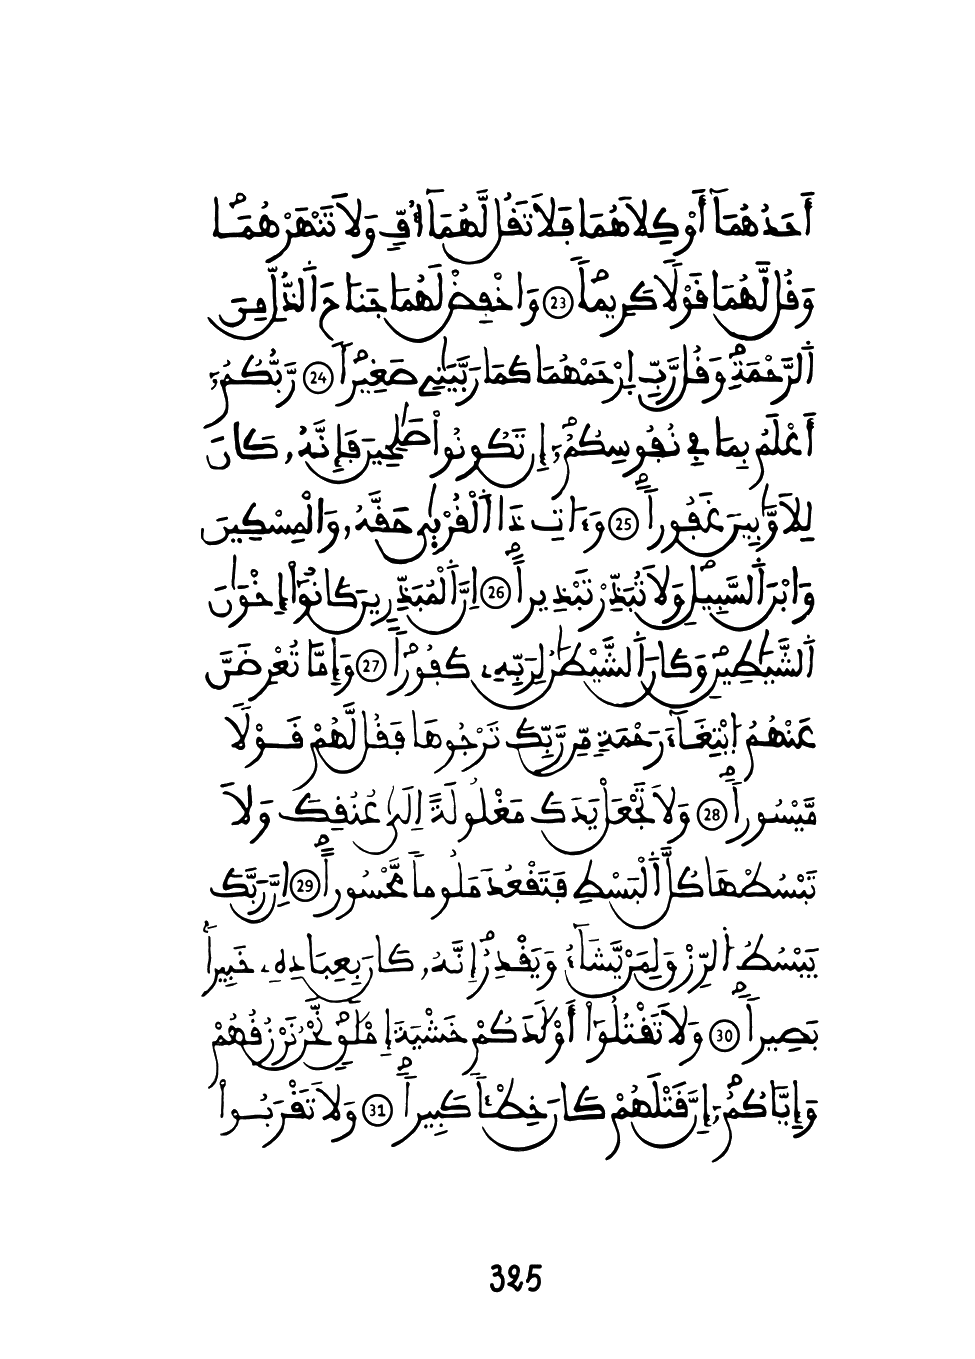 أَحَدُهُمَآ أَوْ كِلَاهُمَا فَلَا تَقُل لَّهُمَآ أُفِّ وَلَا تَنْهَرْهُمَا
وَقُل لَّهُمَا قَوْلًا كَرِيماً 23 وَاخْفِضْ لَهُمَا جَنَاحَ اَ۬لذُّلِّ مِنَ
اَ۬لرَّحْمَةِ وَقُل رَّبِّ اِ۪رْحَمْهُمَا كَمَا رَبَّيَٰنِے صَغِيراً 24 رَّبُّكُمُۥٓ
أَعْلَمُ بِمَا فِے نُفُوسِكُمُۥٓ إِن تَكُونُواْ صَٰلِحِينَ فَإِنَّهُۥ كَانَ
لِلَاوَّٰبِينَ غَفُوراً 25 وَءَاتِ ذَا اَ۬لْقُرْب۪يٰ حَقَّهُۥ وَالْمِسْكِينَ
وَابْنَ اَ۬لسَّبِيلِ وَلَا تُبَذِّرْ تَبْذِيراً 26 اِنَّ اَ۬لْمُبَذِّرِينَ كَانُوٓاْ إِخْوَٰنَ
اَ۬لشَّيَٰطِينِ وَكَانَ اَ۬لشَّيْطَٰنُ لِرَبِّهِۦ كَفُوراً 27 وَإِمَّا تُعْرِضَنَّ
عَنْهُمُ اُ۪بْتِغَآءَ رَحْمَةٍ مِّن رَّبِّكَ تَرْجُوهَا فَقُل لَّهُمْ قَوْلًا
مَّيْسُوراً 28 وَلَا تَجْعَلْ يَدَكَ مَغْلُولَةً اِلَيٰ عُنُقِكَ وَلَا
تَبْسُطْهَا كُلَّ اَ۬لْبَسْطِ فَتَقْعُدَ مَلُوماً مَّحْسُوراً 29 اِنَّ رَبَّكَ
يَبْسُطُ اُ۬لرِّزْقَ لِمَنْ يَّشَآءُ وَيَقْدِرُ إِنَّهُۥ كَانَ بِعِبَادِهِۦ خَبِيراً
بَصِيراً 30 وَلَا تَقْتُلُوٓاْ أَوْلَٰدَكُمْ خَشْيَةَ إِمْلَٰقٍ نَّحْنُ نَرْزُقُهُمْ
وَإِيَّاكُمُۥٓ إِنَّ قَتْلَهُمْ كَانَ خِطْـٔاً كَبِيراً 31 وَلَا تَقْرَبُواْ
325